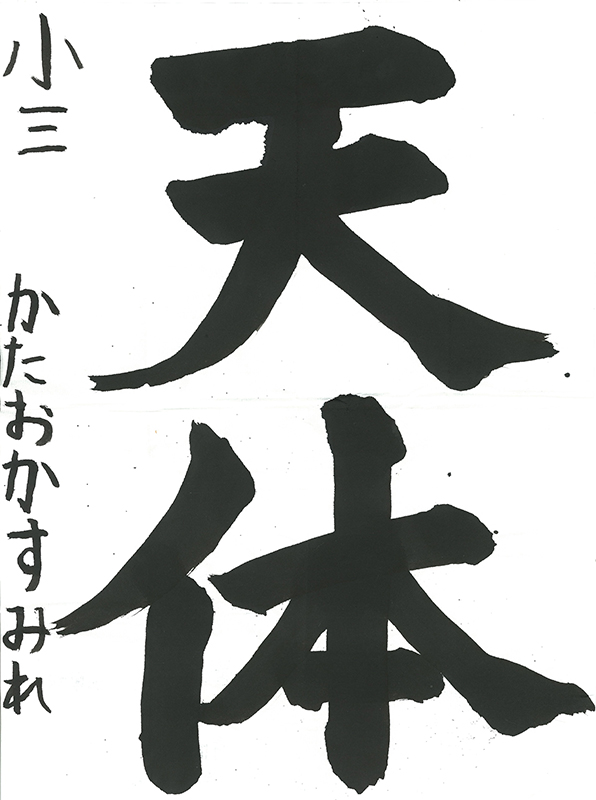 天体
小三 かたおかすみれ